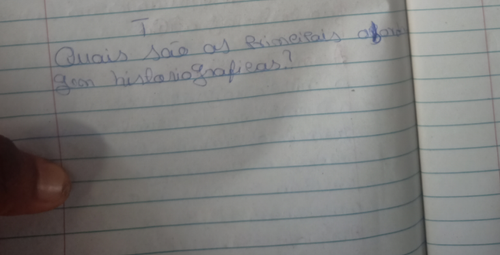 T
Quais são as principais abor
gen historiograficas?